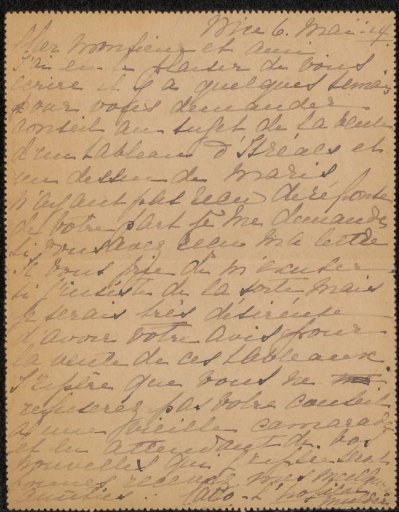 Nice 6. Mai 14
Cher Monsieur et ami
J'ai eu le plaisir de vous
écrire il y a quelques temps
pour vous demander
conseil au sujet de la vente
d'un tableau d'Israels et
un dessin de Maris
n'ayant pas reçu de réponse
de votre part je me demande
si vous avez reçu ma lettre
Je vous prie de m'excuser
si j'insiste de la sorte mais
je serais très désireuse
d'avoir votre avis pour
la vente de ces tableaux.
J'espère que vous ne
refuserez pas votre conseil
à une vieille camarade
et en attendant de vos
nouvelles que j'espère
bonnes recevez mes meilleures
amitiés.